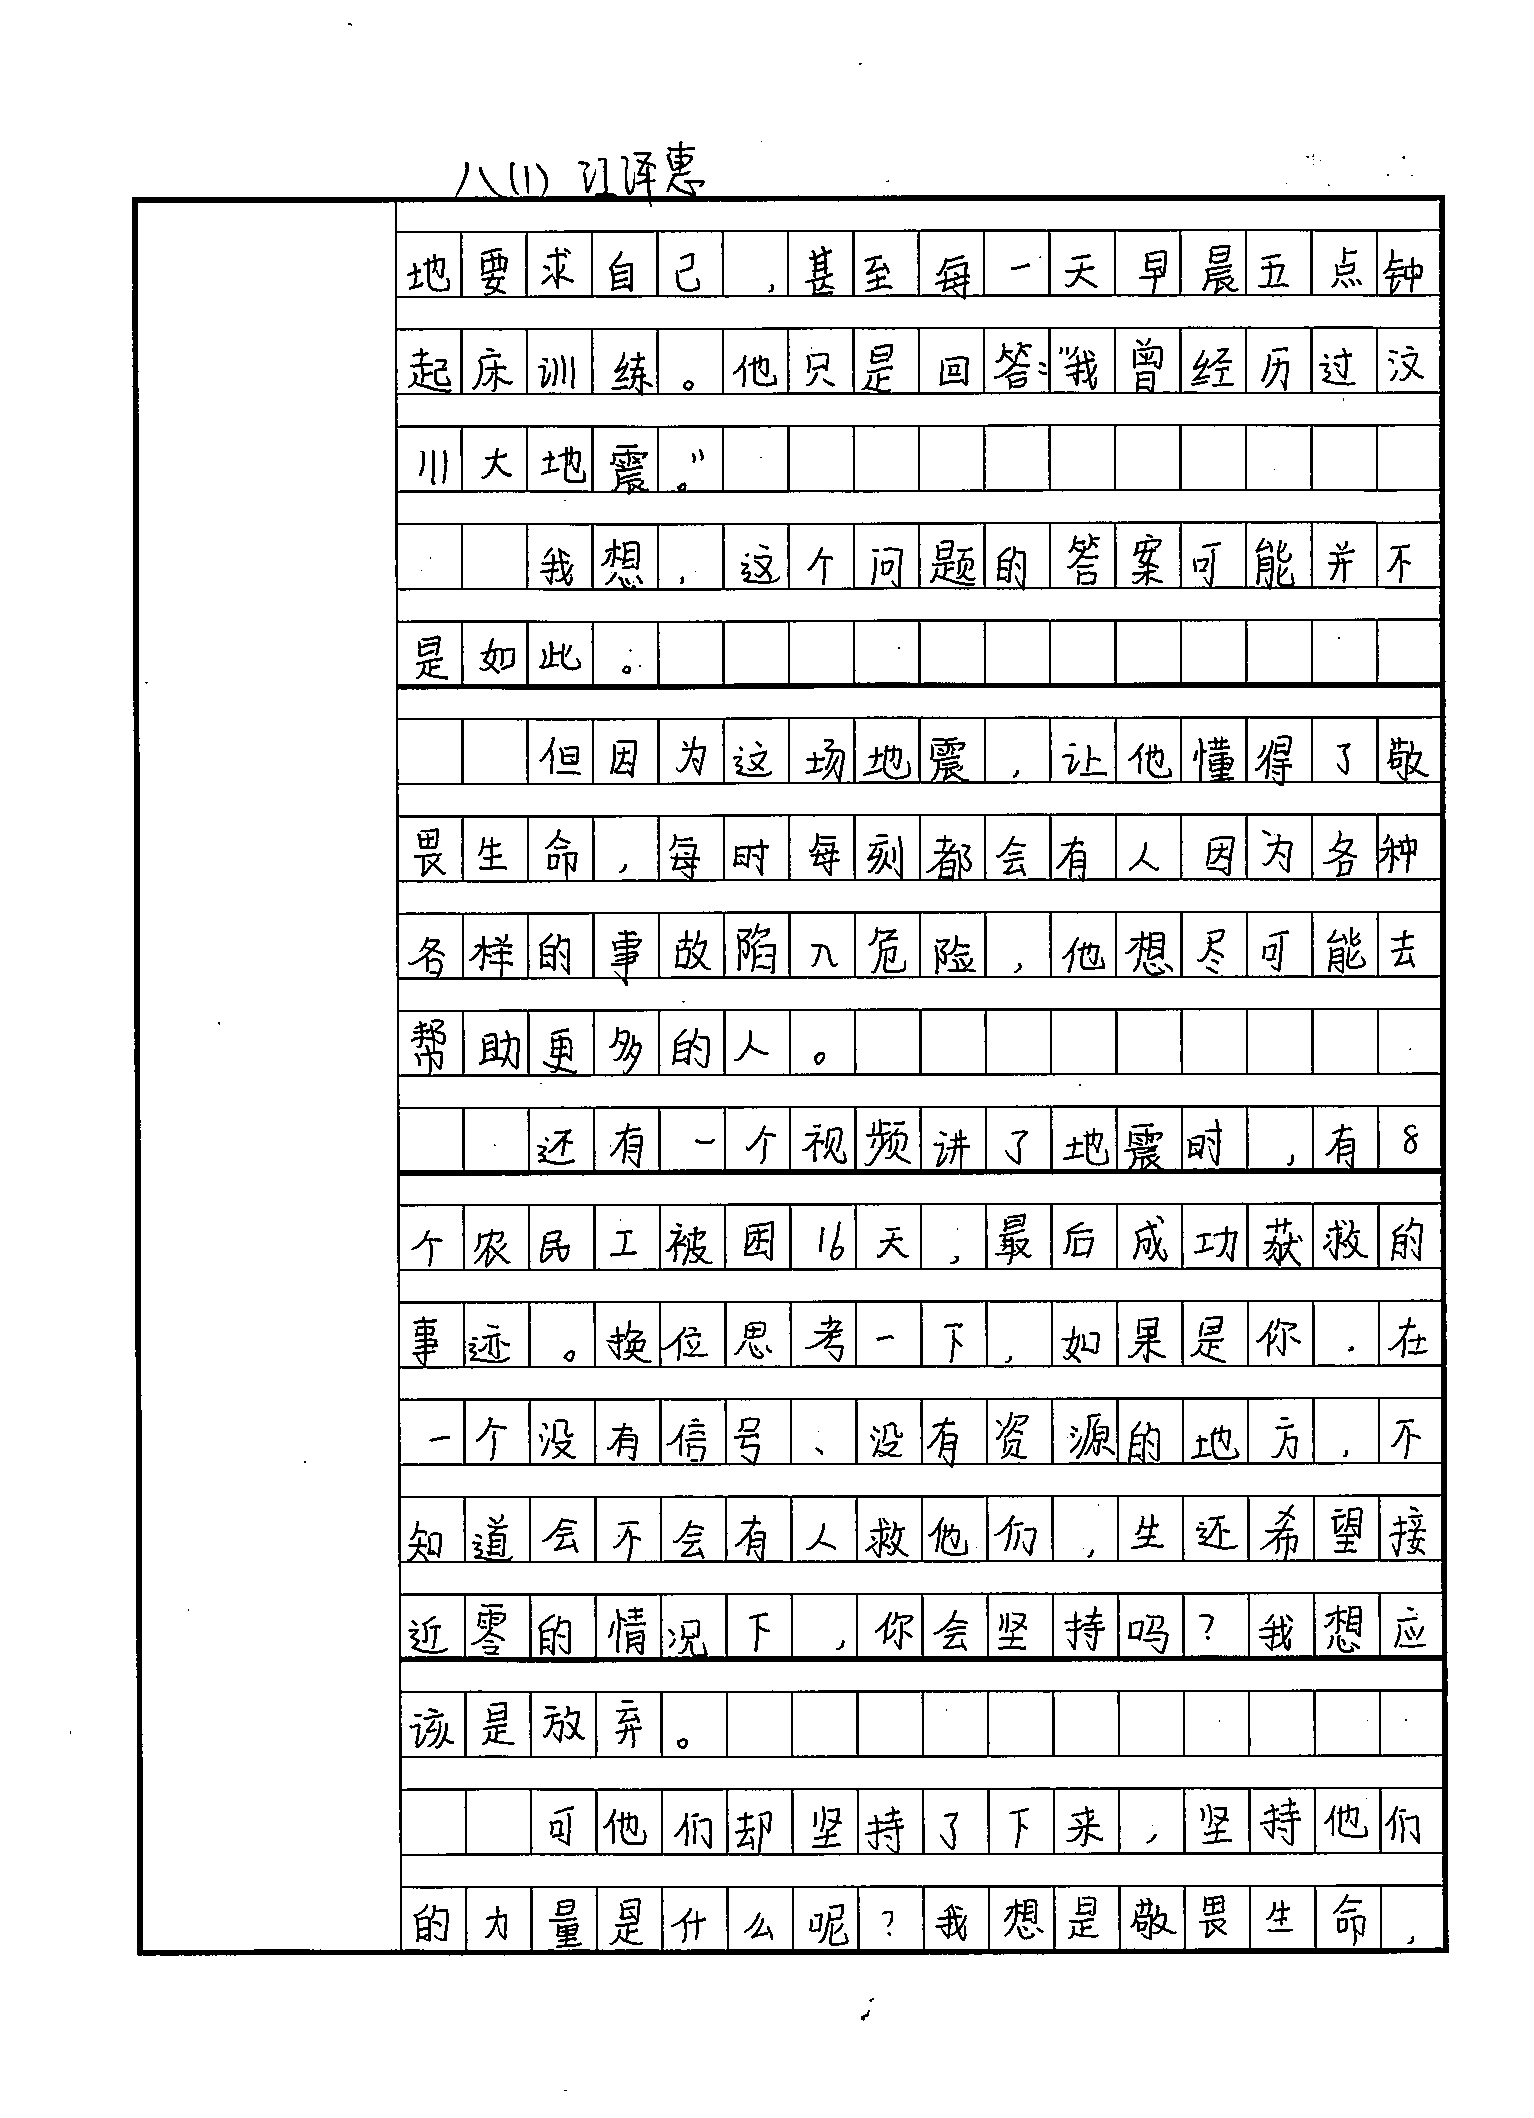 八(1) 汪泽惠
地要求自己，甚至每一天早晨五点钟
起床训练。他只是回答："我曾经历过汶
川大地震。"
我想，这个问题的答案可能并不
是如此。
但因为这场地震，让他懂得了敬
畏生命，每时每刻都会有人因为各种
各样的事故陷入危险，他想尽可能去
帮助更多的人。
还有一个视频讲了地震时，有8
个农民工被困16天，最后成功获救的
事迹。换位思考一下，如果是你．在
一个没有信号、没有资源的地方，不
知道会不会有人救他们，生还希望接
近零的情况下，你会坚持吗？我想应
该是放弃。
可他们却坚持了下来，坚持他们
的力量是什么呢？我想是敬畏生命，